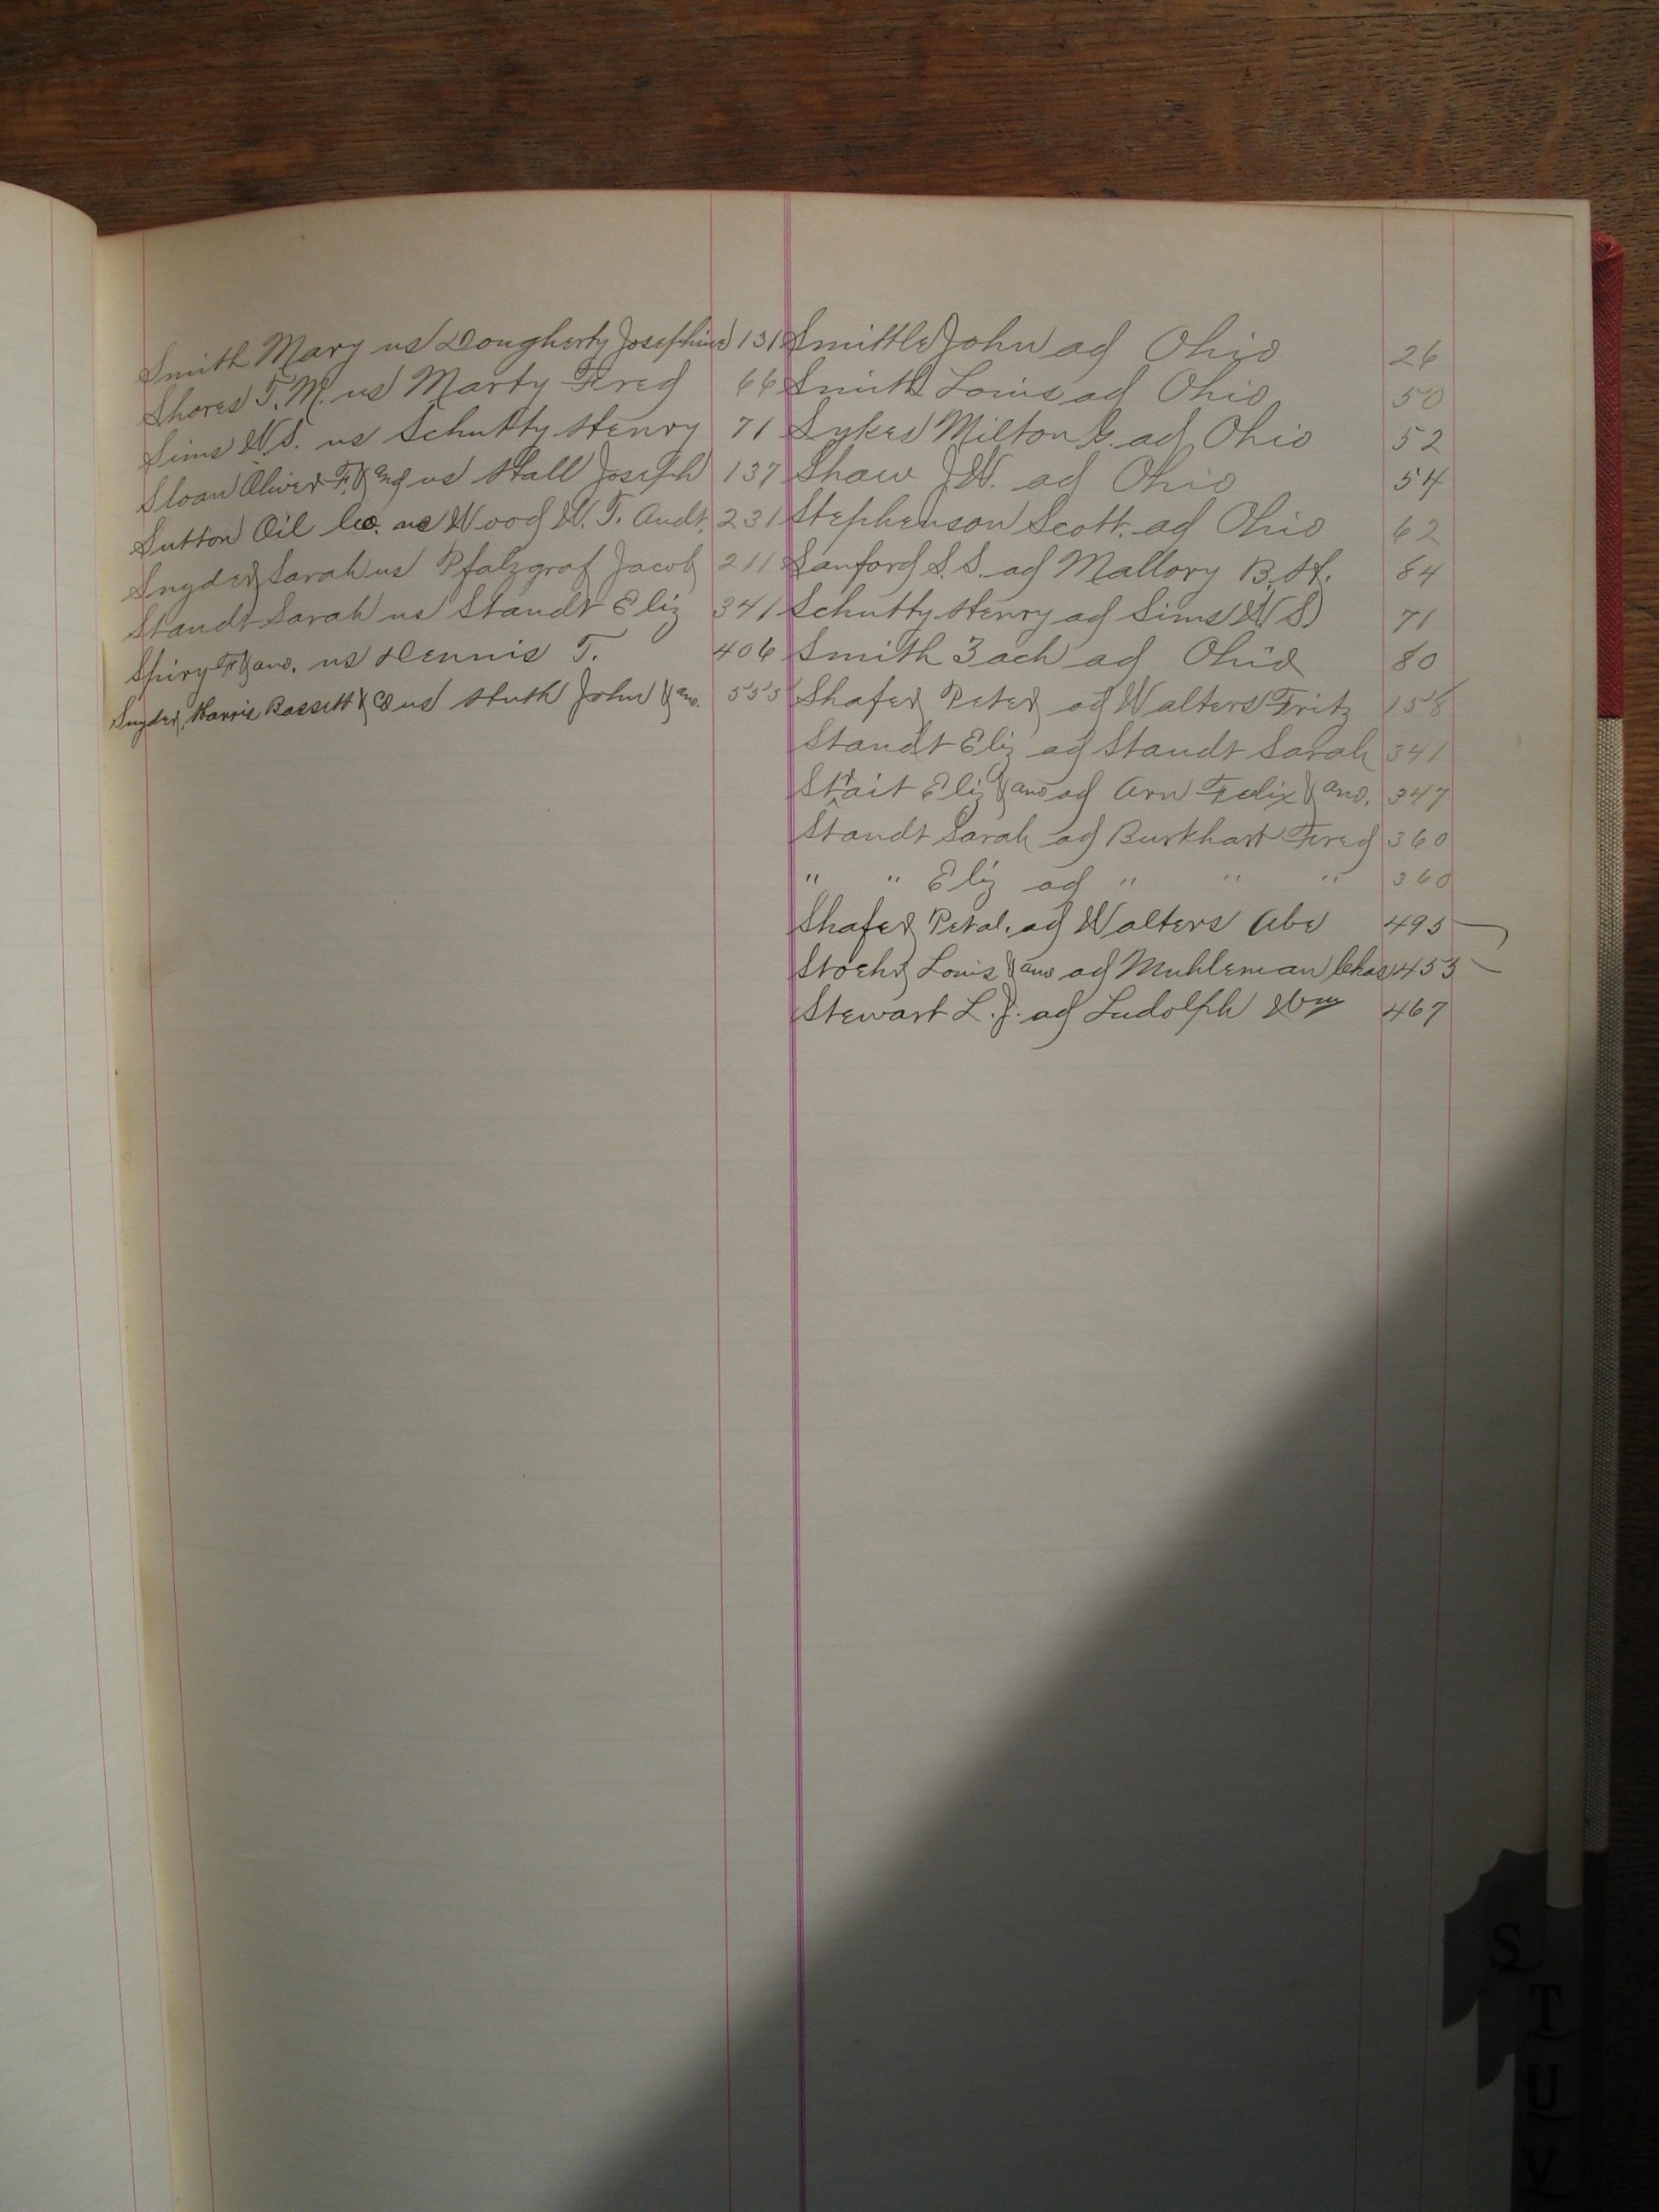 Smith Mary vs Dougherty Josephine 131
Shores T. M. vs Marty Fred 66
Sims W S. vs Schutty Henry 71
Sloan Oliver F. & vs Stall Joseph 137
Sutton Oil Co. vs Wood W. T. Audt. 231
Snyder Sarah vs Pfalzgraf Jacob 211
Standt Sarah vs Standt Eliz 341
Spiry F & ano. vs Dennis T. 406
Snyder, Harris Bassett & Co vs Huth John & ano. 555
Smittle John ad Ohio 26
Smith Louis ad Ohio 50
Sykes Milton G. ad Ohio 52
Shaw J. W. ad Ohio 54
Stephenson Scott. ad Ohio 62
Sanford S. S. ad Mallory B. H. 64
Schutty Henry ad Sims W S 71
Smith Zach ad Ohio 80
Shafer Peter ad Walters Fritz 158
Standt Eliz ad Standt Sarah 341
Strait Eliz & ano ad Arn Felix & ano. 347
Standt Sarah ad Burkhart Fred 360
" " Eliz ad " " " 360
Shafer Pet al. ad Walters Abe 495
Stoehr Louis & ano ad Muhleman Chas 453
Stewart L. J. ad Ludolph Wm 467
S
T
U
V